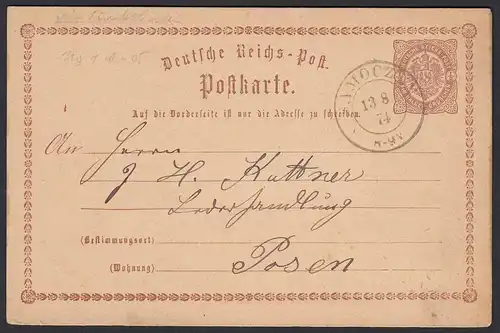 Deutsche Reichs-Post.
Postkarte.
Auf die Vorderseite ist nur die Adresse zu schreiben.
13 8
74
An Herrn
J H. Kuttner
Lederhandlung
(Bestimmungsort) Posen
(Wohnung)